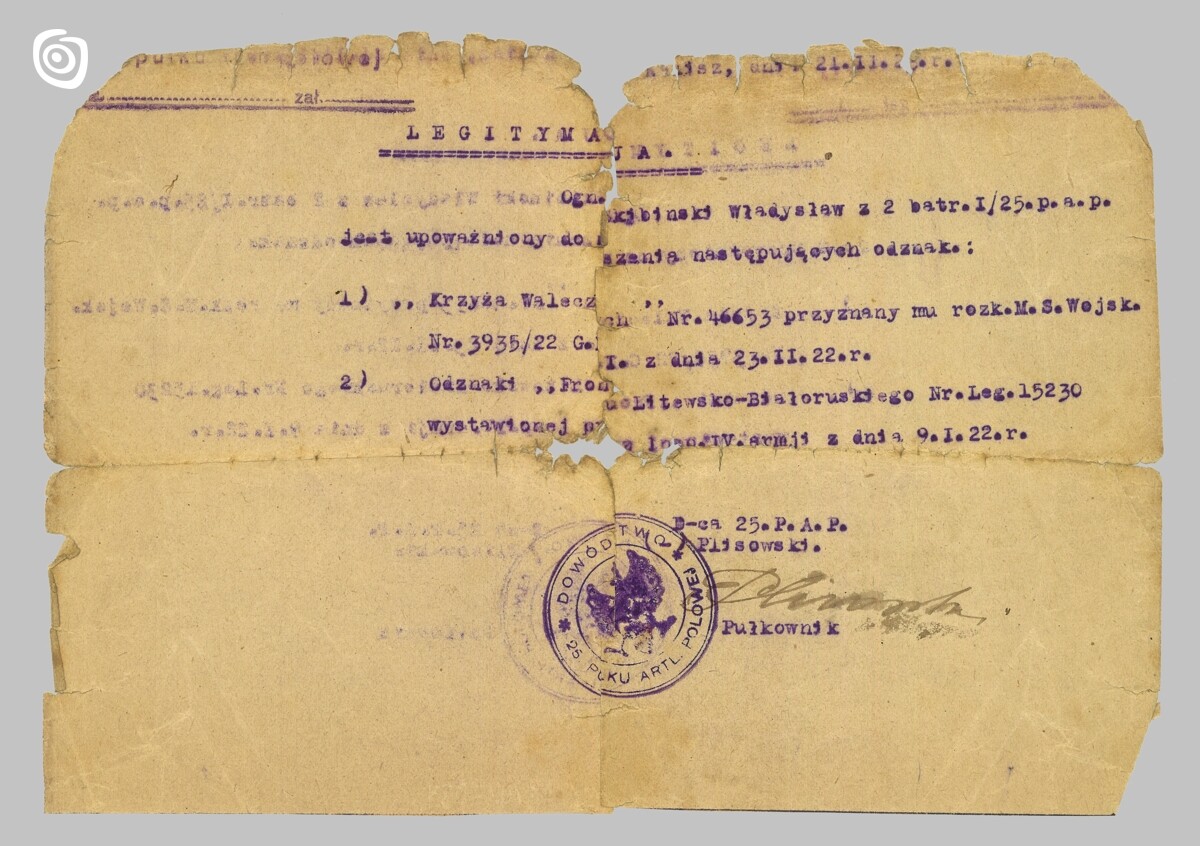 pułku
21.II.
zał.
LEGITYMACJA.
Ogn. Skibinski Władysław z 2 batr.I/25.p.a.p.
jest upoważniony do szania następujących odznak.:
1) ,, Krzyża Walecznych ,, Nr.46653 przyznany mu rozk.M.S.Wojsk.
Nr.3935/22 G. I. z dnia 23.II.22.r.
2) Odznaki ,,Frontu Litewsko-Białoruskiego Nr.Leg.15230
wystawionej IV.armji z dnia 9.I.22.r.
D-ca 25.P.A.P.
(-) Plisowski.
Pułkownik
* DOWÓDZTWO * 25 PUŁKU ARTL. POLOWEJ